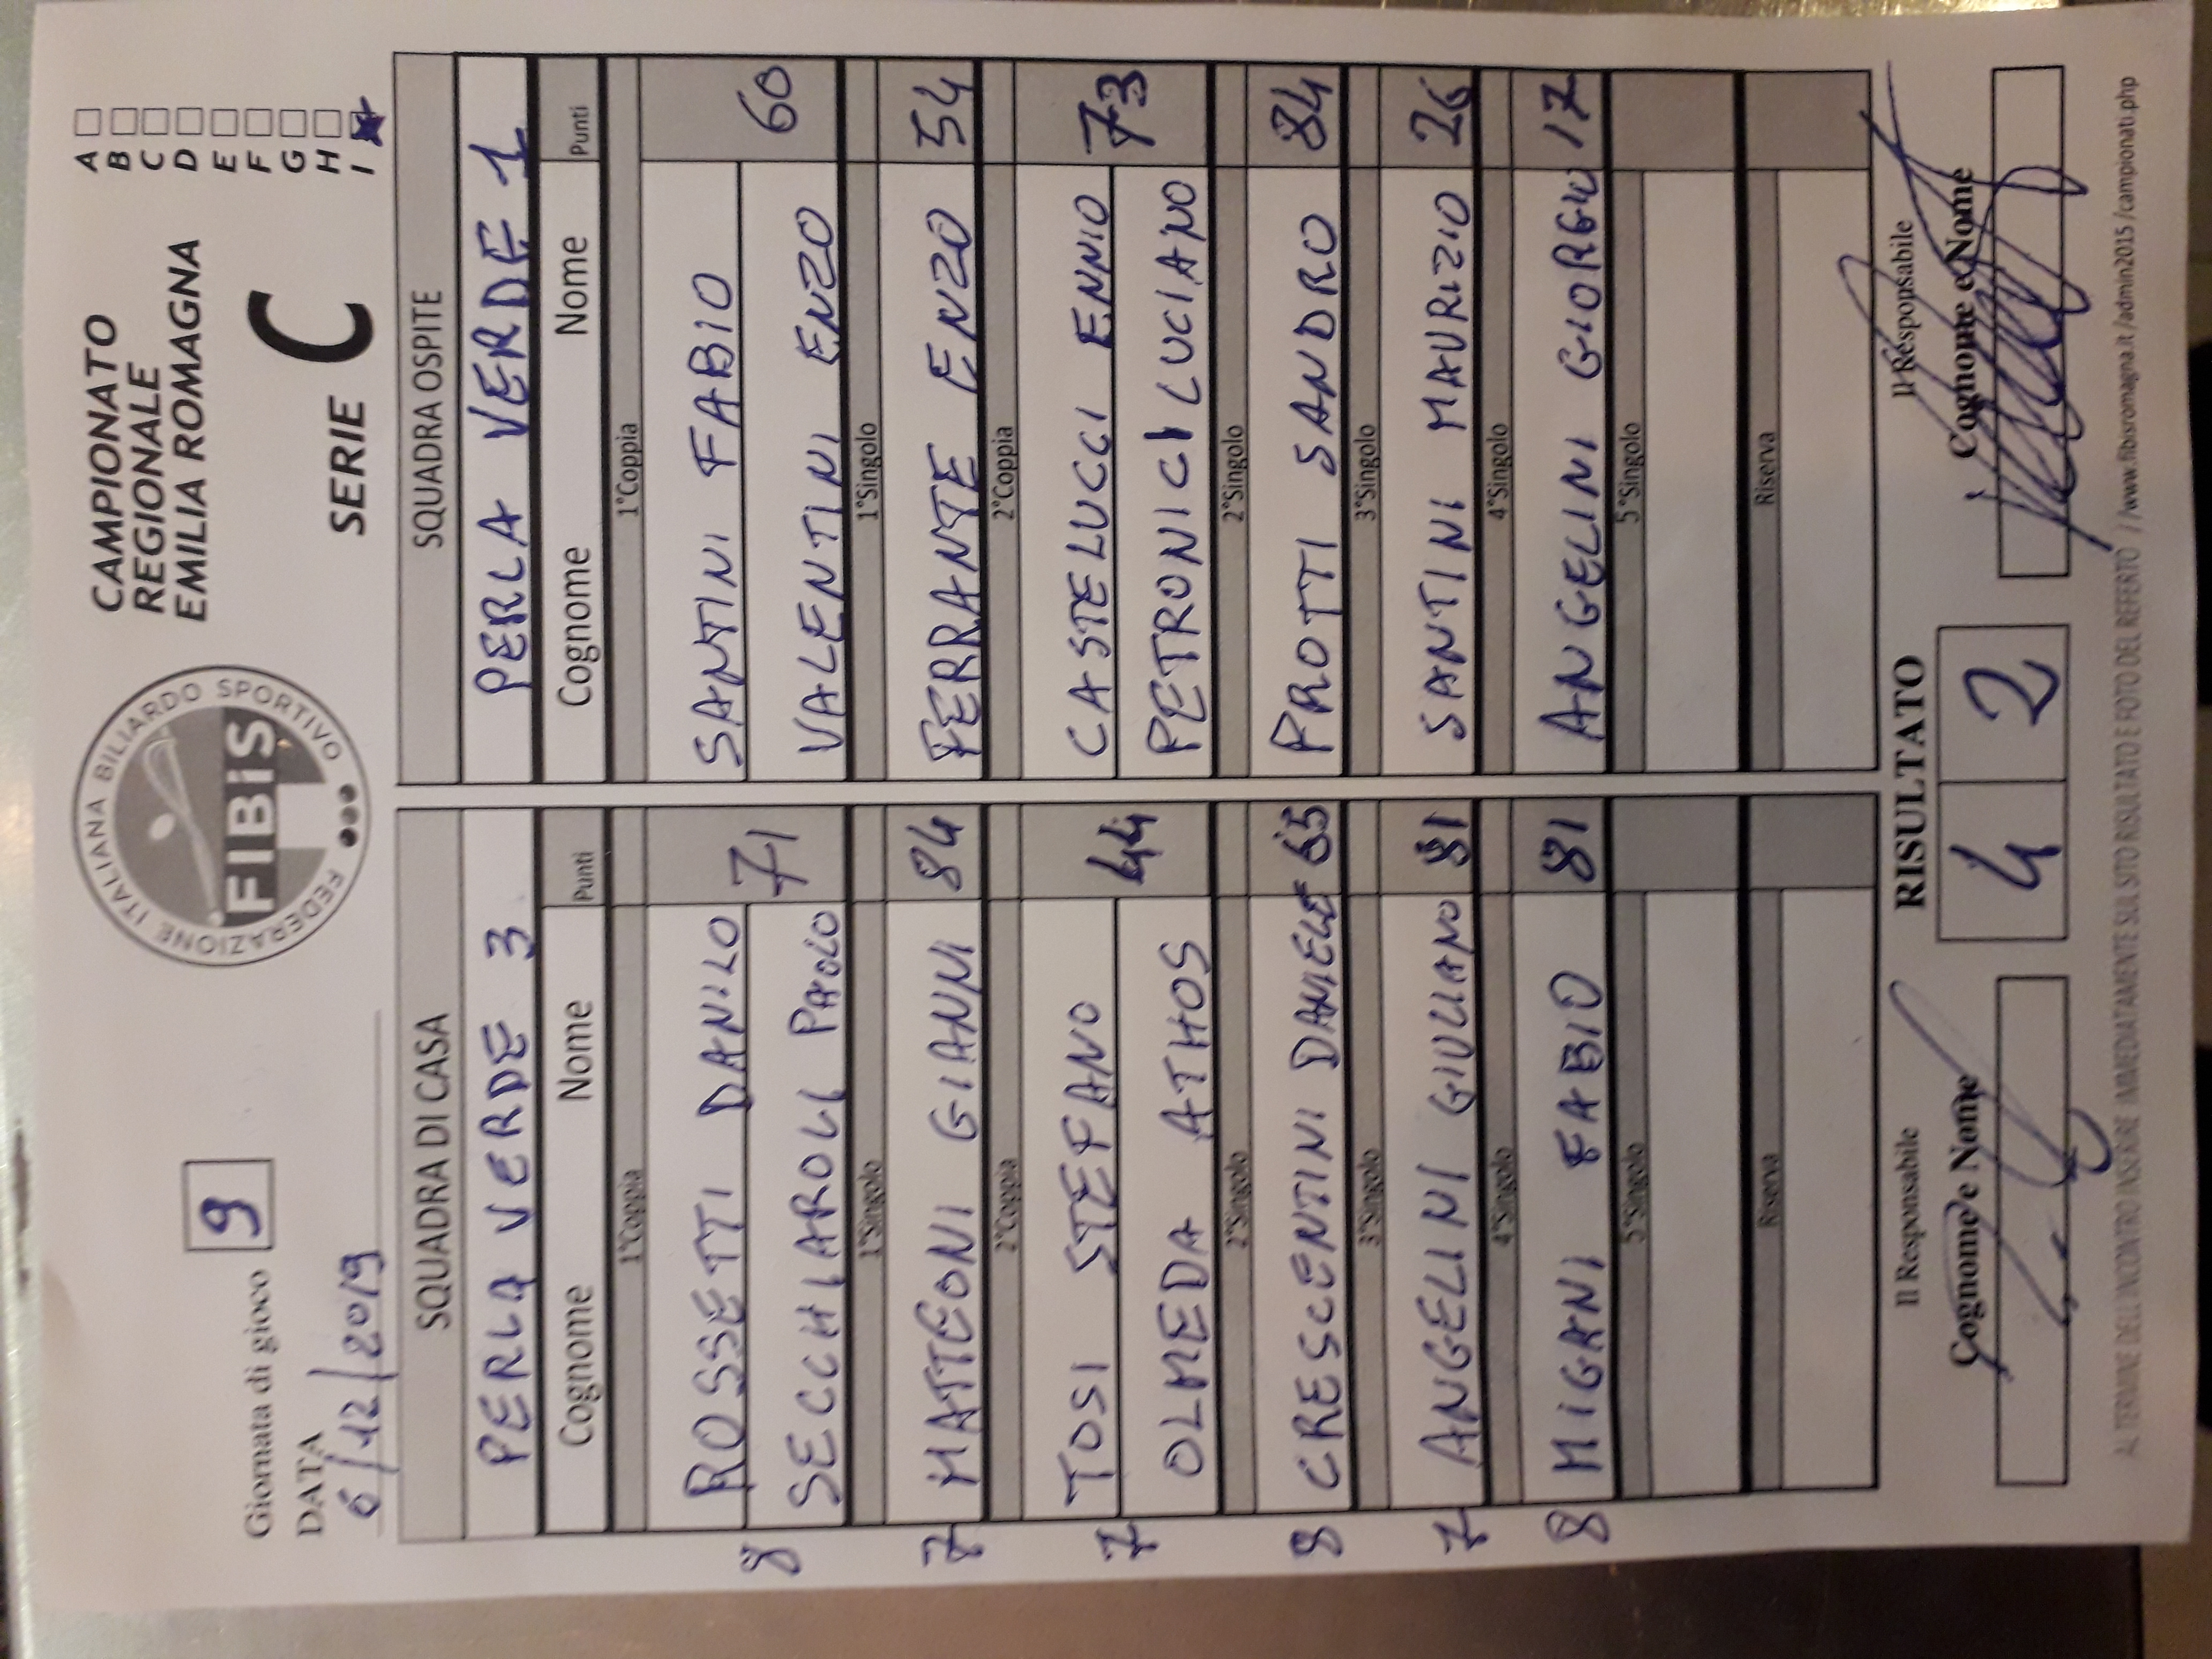 Giornata di gioco 9
DATA
6/12/2019
FEDERAZIONE ITALIANA BILIARDO SPORTIVO
FIBiS
CAMPIONATO
REGIONALE
EMILIA ROMAGNA
SERIE C
A
B
C
D
E
F
G
H
I
SQUADRA DI CASA SQUADRA OSPITE
PERLA VERDE 3 PERLA VERDE 1
Cognome Nome Punti Cognome Nome Punti
1°Coppia 1°Coppia
ROSSETTI DANILO SANTINI FABIO
8 71 60
SECCHIAROLI PAOLO VALENTINI ENZO
1°Singolo 1°Singolo
7 MATTEONI GIANNI 84 FERRANTE ENZO 54
2°Coppia 2°Coppia
TOSI STEFANO CASTELUCCI ENNIO
7 44 73
OLMEDA ATHOS PETRONICI LUCIANO
2°Singolo 2°Singolo
8 CRESCENTINI DANIELE 65 PROTTI SANDRO 84
3°Singolo 3°Singolo
7 ANGELINI GIULIANO 81 SANTINI MAURIZIO 26
4°Singolo 4°Singolo
8 MIGANI FABIO 81 ANGELINI GIORGIO 17
5°Singolo 5°Singolo
Riserva Riserva
Il Responsabile RISULTATO Il Responsabile
Cognome e Nome 4 2 Cognome e Nome
AL TERMINE DELL'INCONTRO INSERIRE IMMEDIATAMENTE SUL SITO RISULTATO E FOTO DEL REFERTO //www.fibisromagna.it/admin2015/campionati.php